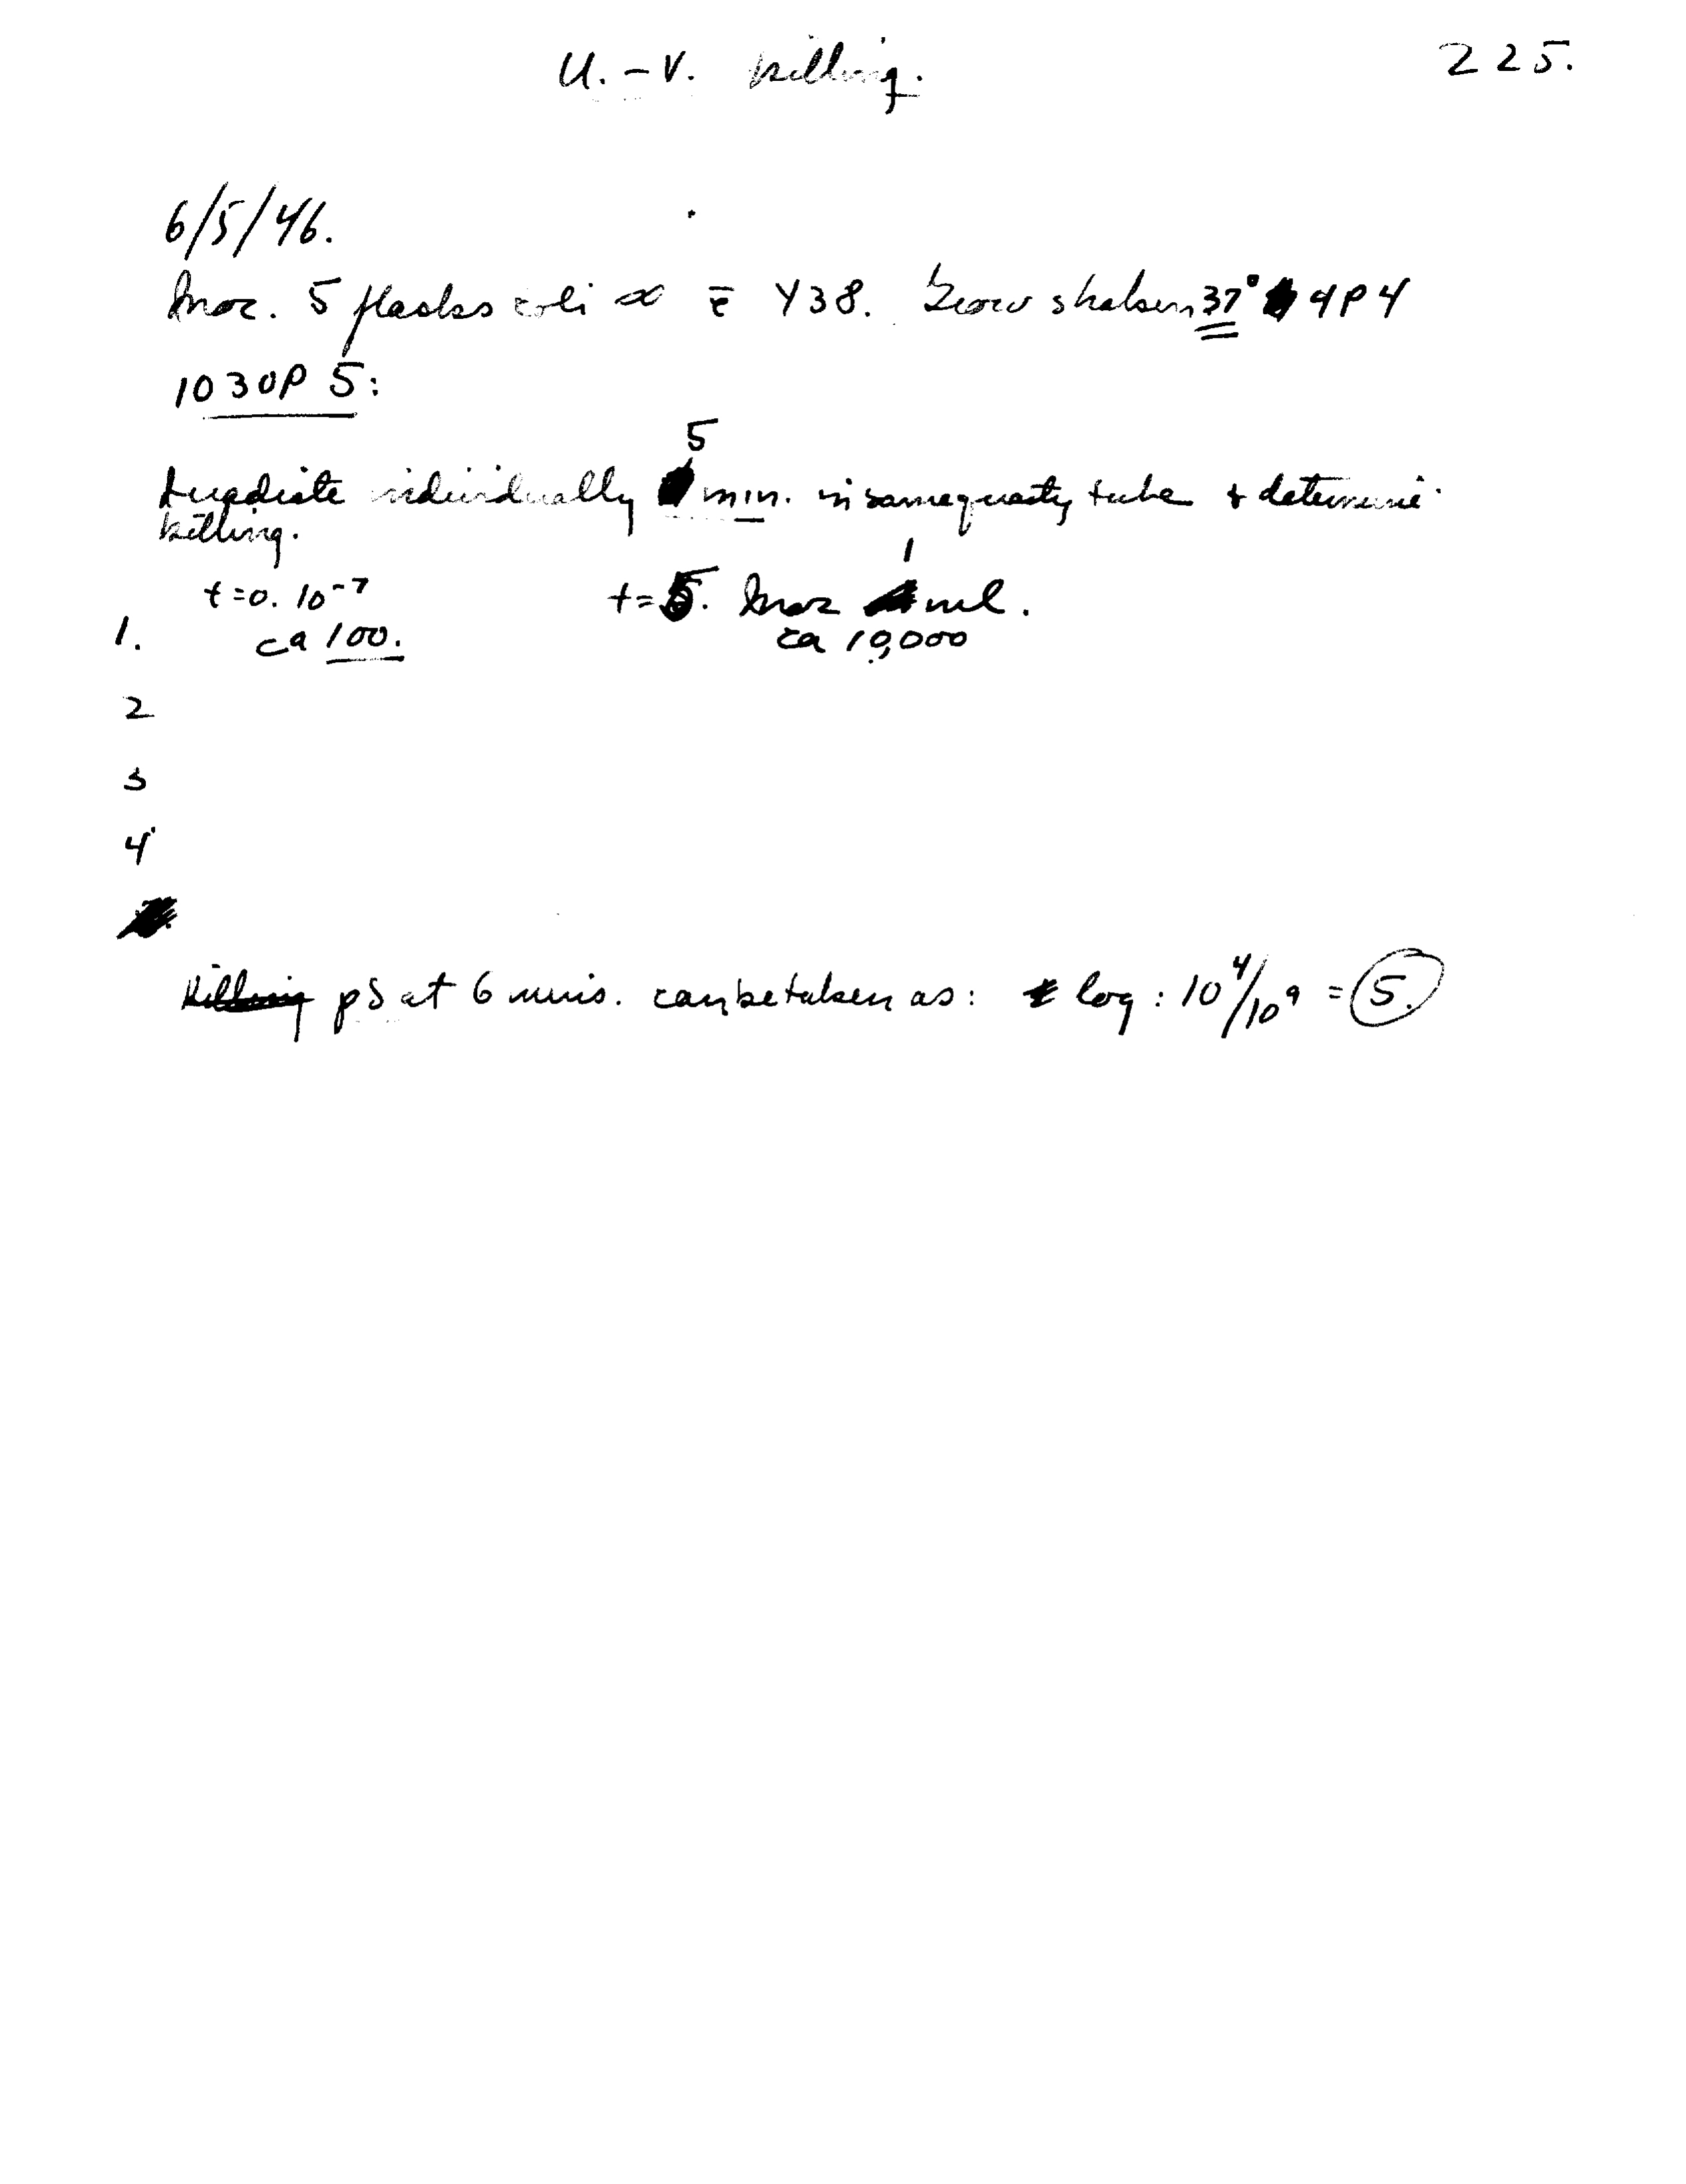 U.-V. killing.
225.
6/5/46.
Inoc. 5 flasks coli ∞ c̄ Y38. Grow shaken 37° 4P4
1030P 5:
Irradiate individually 5 min. in same quartz tube & determine
killing.
t=0. 10⁻⁷ t=5. Inoc 1 ml.
1. ca 100. ca 10,000
2
3
4
Killing pS at 6 mins. can be taken as: log: 10⁴/10⁹ = 5.